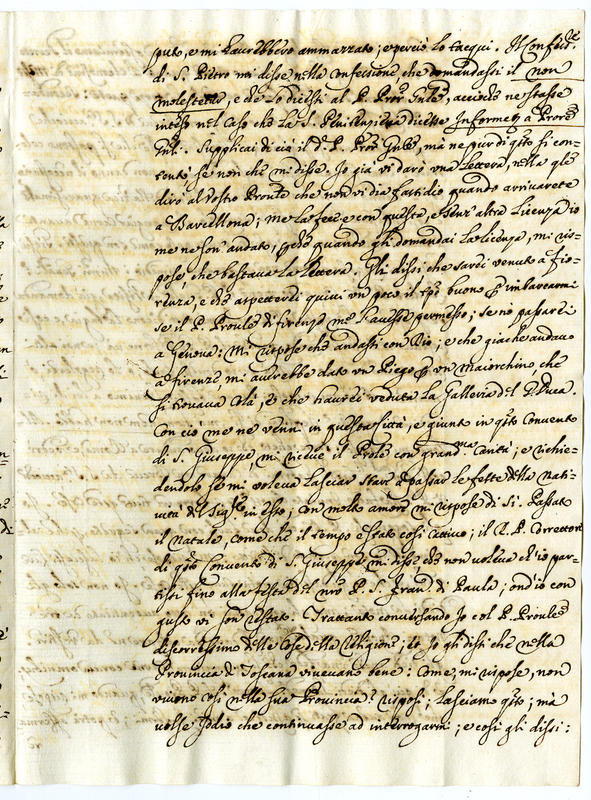 puto, e mi haurebbero ammazzato; e perciò lo tacqui. Il Confess.re
di S. Pietro mi disse nella confessione, che domandassi il non
molestetur, e che lo dicessi al P. Pror. Gnle, acciochè ne stasse
inteso nel caso che la S. Penitenzieria dicesse Informet a Prore
Gnl. Supplicai di ciò il d.º P. Pror Gnle, mà ne pur di q.sto fi con-
tentò se non che mi disse. Io già vi darò una lettera, nella q.le
dirò al vostro Prounle che non vi dia fastidio quando arrivarete
a Barcellona; me la fece e con questa, e senz'altra licenza io
me ne son' andato, perchè quando gli domandai la licenza, mi ris-
pose, che bastava la lettera. Gli dissi che sarei venuto a Fio-
renza, e che aspetterei quivi un poco il tpo buono p imbarcarmi
se il P. Prounle di firenze me l'avesse permesso; se nò passarei
a Genova: Mi rispose che andassi con Dio; e che giache andavo
a firenze, mi aurebbe dato un Piego p un maiorchino, che
si trovava là, e che haurei veduta la Galleria del G. Duca.
Con ciò me ne venni in questa città, e giunto in q.sto convento
di S. Giuseppe, mi ricevè il Prole con grand.ma carità; e richie-
dendolo se mi voleva lasciar stare a passar le feste della nati-
vità del Sig.re in esso, con molto amore mi rispose di sì. Passato
il natale, come che il tempo è stato così cattivo; il R. P. Correttore
di q.sto Convento di S. Giuseppe mi disse, che non voleva ch'io par-
tissi fino alla festa del nro P. S. Fran.co di Paula; ond'io con
gusto vi son restato. Trattanto conversando Io col P. Prounle
discorressimo delle cose della Religione; ed io gli dissi che nella
Provincia di Toscana vivevano bene: Come, mi rispose, non
vivono così nella sua Provincia? risposi; lasciamo q.sto; mà
volse Iddio che continuasse ad interrogarmi; e così gli dissi: